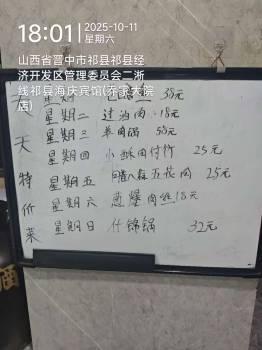 18:01
2025-10-11
星期六
山西省晋中市祁县祁县经
济开发区管理委员会二浙
线祁县海庆宾馆(乔家大院
店)
天天特价菜
星期二 过油肉 18元
星期三 羊肉锅 58元
星期四 小酥肉 25元
星期五 五花肉 25元
星期六 葱爆肉丝 18元
星期日 什锦锅 32元